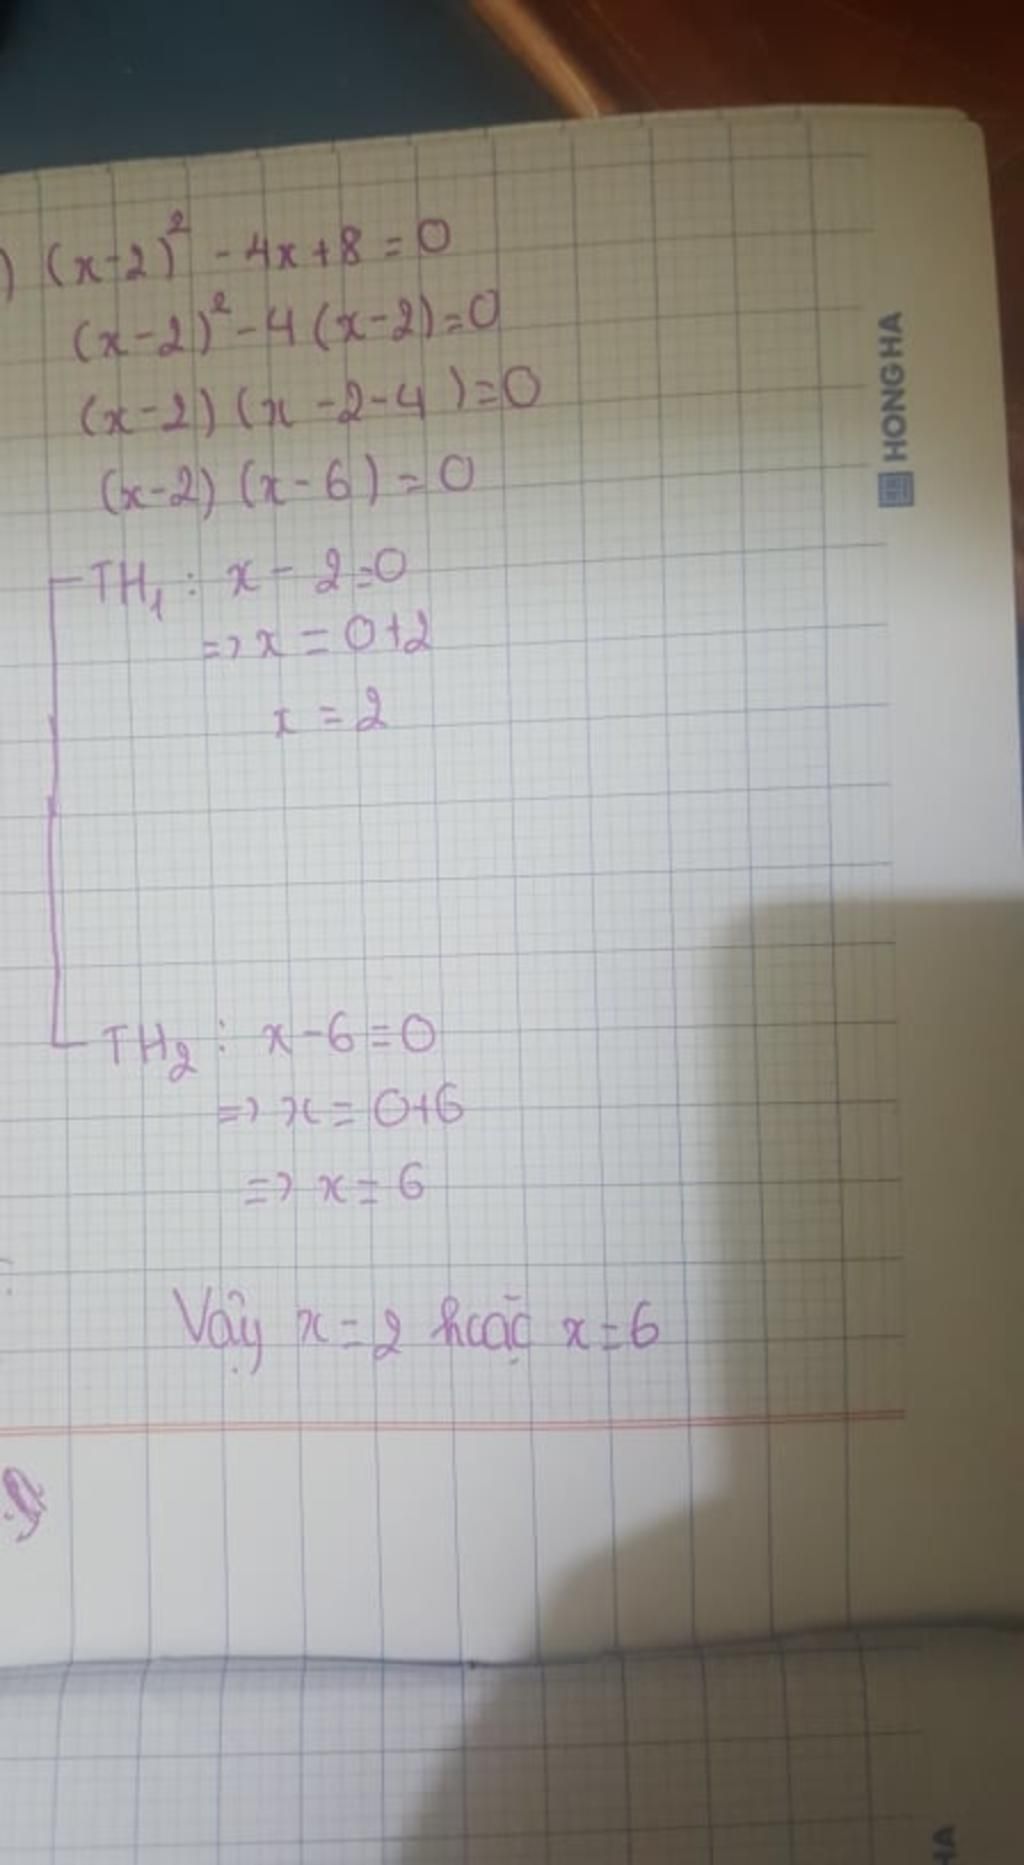 ) (x-2)² - 4x+8=0
(x-2)²-4(x-2)=0
(x-2)(x-2-4)=0
(x-2)(x-6)=0
TH₁: x-2=0
=> x=0+2
x=2
TH₂: x-6=0
=> x=0+6
=> x=6
Vậy x=2 hoặc x=6
HONG HA
HA